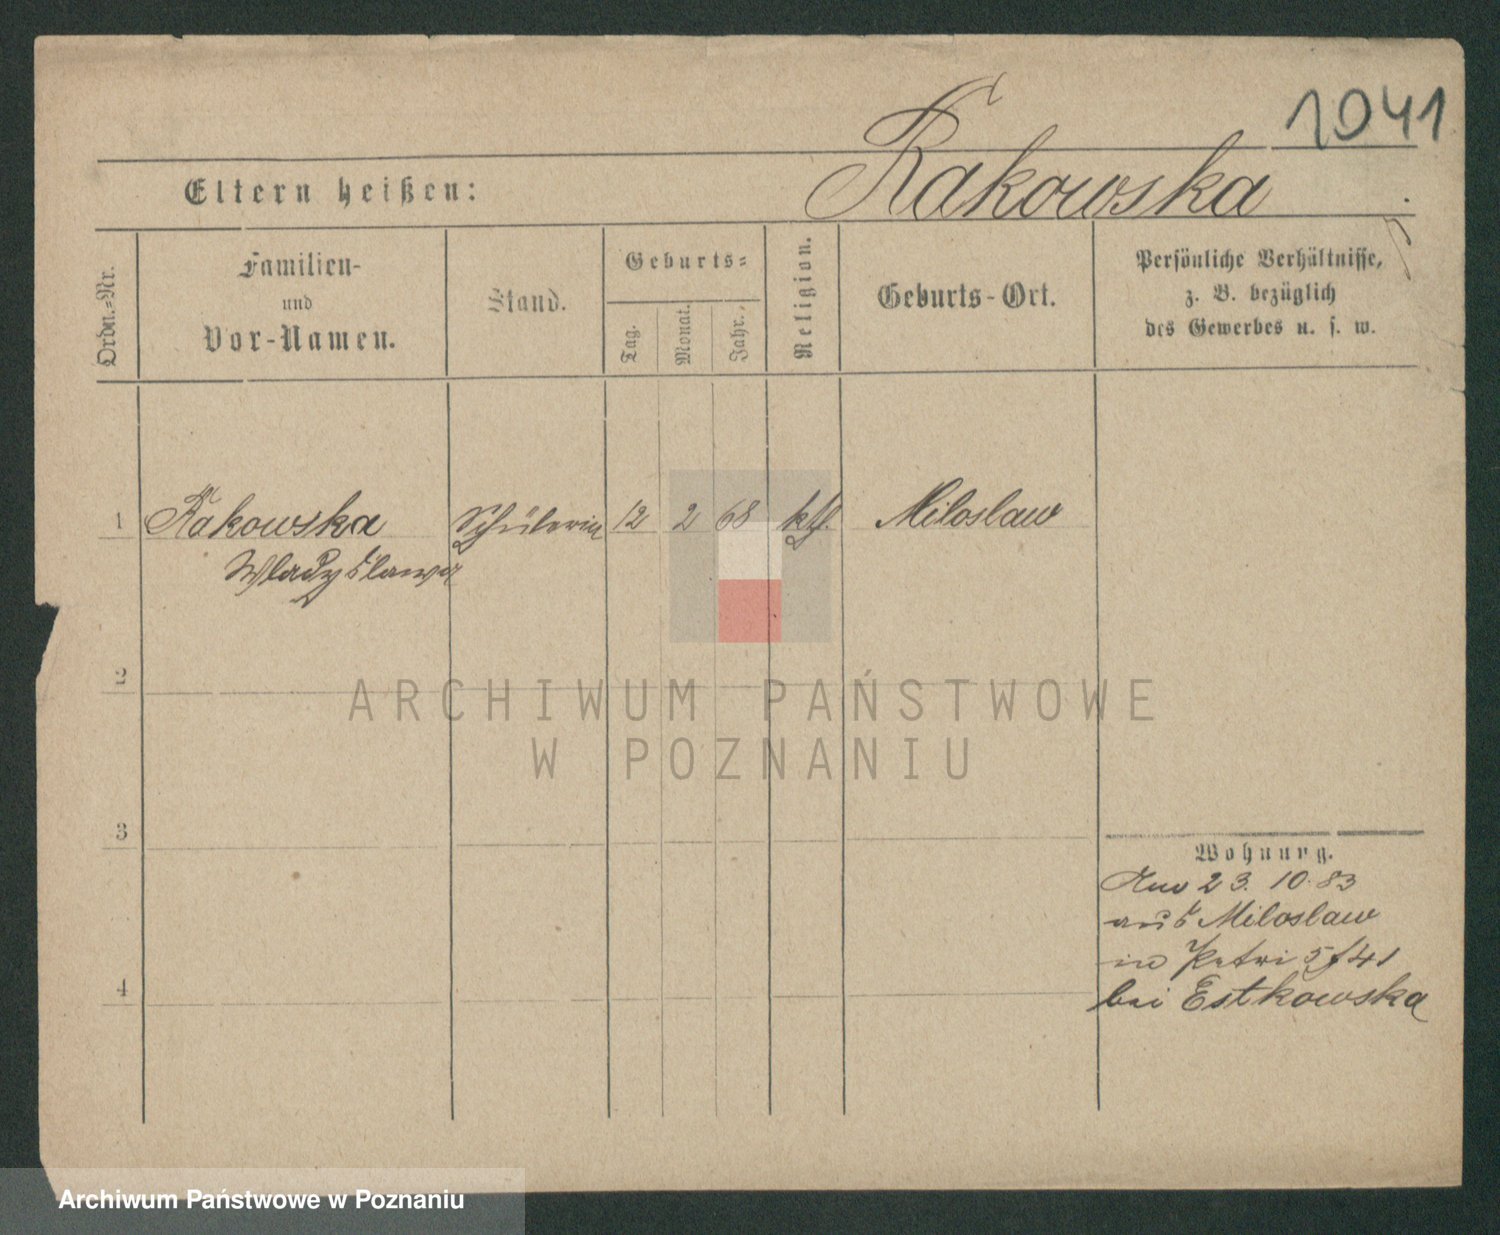 1041
Rakowska
Eltern heißen:
Ordn.-Nr.
Familien-
und
Vor-Namen.
Stand.
Geburts-
Tag.
Monat.
Jahr.
Religion.
Geburts-Ort.
Persönliche Verhältnisse,
z. B. bezüglich
des Gewerbes u. s. w.
1 Rakowska Schülerin 12 2 68 kth. Miloslaw
Wladyslawa
2
3
4
Wohnung.
23. 10. 83
aus Miloslaw
in Petri 5 / 41
bei Estkowska
ARCHIWUM PAŃSTWOWE
W POZNANIU
Archiwum Państwowe w Poznaniu